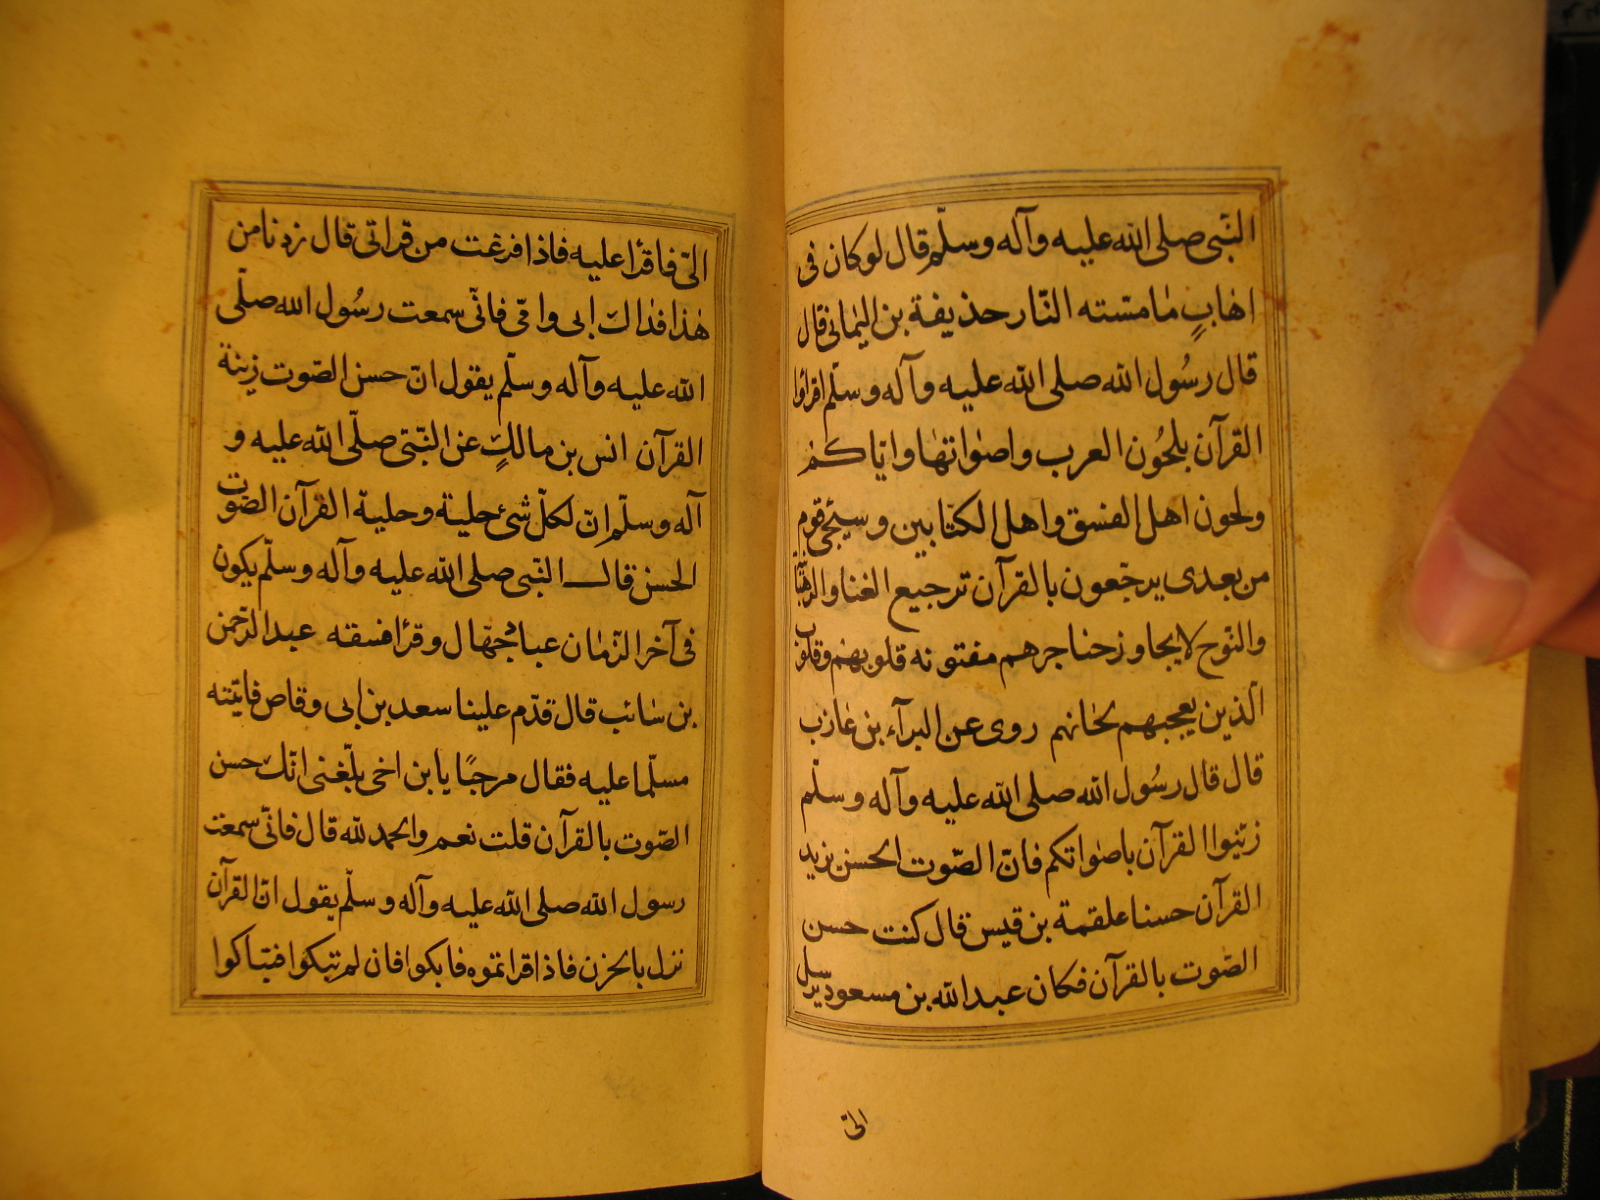 النّبی صلی الله علیه وآله وسلّم قال لوکان فی
اهابٍ مامسّته النّار حذیفة بن الیمانی قال
قال رسُول الله صلی الله علیه وآله وسلّم اقرأوا
القرآن بلحُون العرب واصواتها وایّاکم
ولحون اهل الفسق واهل الکتابین وسیجئ قوم
من بعدی یرجّعون بالقرآن ترجیع الغنا والرّهبّا
والنّوح لایجاوز حناجرهم مفتونه قلوبهم وقلوب
الّذین یعجبهم لحانهم روی عن البرآء بن عازب
قال قال رسُول الله صلی الله علیه وآله وسلّم
زیّنوا القرآن باصواتکم فانّ الصّوت الحسن یزید
القرآن حسنا علقمة بن قیس قال کنت حسن
الصّوت بالقرآن فکان عبدالله بن مسعود یرسل
الیّ
الیّ فاقرأ علیه فاذا فرغت من قراتی قال زدنا من
هذا فداک ابی وامّی فانّی سمعت رسُول الله صلّی
الله علیه وآله وسلّم یقول انّ حسن الصّوت زینة
القرآن انس بن مالکٍ عن النّبّی صلّی الله علیه و
آله وسلّم انّ لکلّ شئ حلیة وحلیة القرآن الصّوت
الحسن قال النّبی صلی الله علیه وآله وسلّم یکون
فی آخر الزّمان عباد جهّال وقرّا فسقه عبدالرّحمن
بن سائب قال قدّم علینا سعد بن ابی وقاص فاتیته
مسلّما علیه فقال مرحبًا یا بن اخی بلّغنی انّک حسن
الصّوت بالقرآن قلت نعم والحمد لله قال فانّی سمعت
رسول الله صلی الله علیه وآله وسلّم یقول انّ القرآن
نزل بالحزن فاذا قراتموه فابکوا فان لم تبکوا فتباکوا